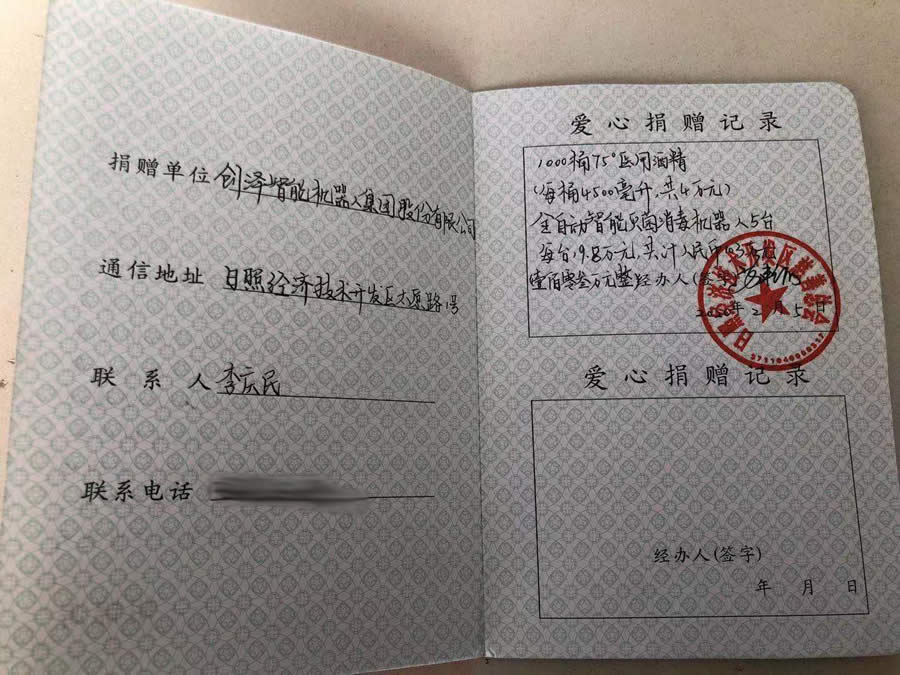 捐赠单位 创泽智能机器人集团股份有限公司
通信地址 日照经济技术开发区太原路 号
联系人 李庆民
联系电话
爱心捐赠记录
1000桶75°医用酒精
(每桶4500毫升,共4万元)
全自动智能灭菌消毒机器人5台
每台19.8万元,共计人民币
壹佰零叁万元整 经办人(签字)
2020年2月5日
3711040066237
爱心捐赠记录
经办人(签字)
年 月 日